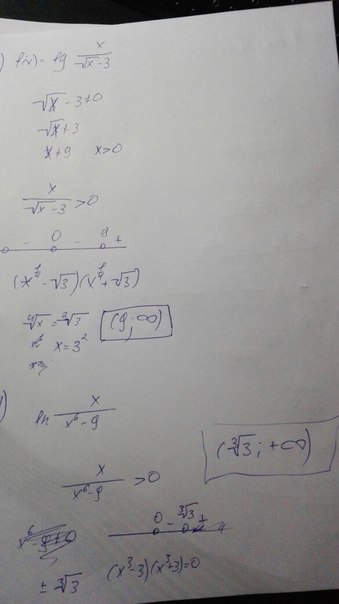 ) f(x) = lg x/(√x-3)
√x - 3 ≠ 0
√x ≠ 3
x ≠ 9 x>0
x/(√x-3) > 0
0 - 0 - 9 +
(x^¼ - √3)(x^¼ + √3)
⁴√x = ⁴√3
x = 3²
(9; ∞)
) ln x/(x⁶-9)
x/(x⁶-9) > 0
(³√3; +∞)
0 - ³√3 +
± ³√3 (x³-3)(x³+3)=0